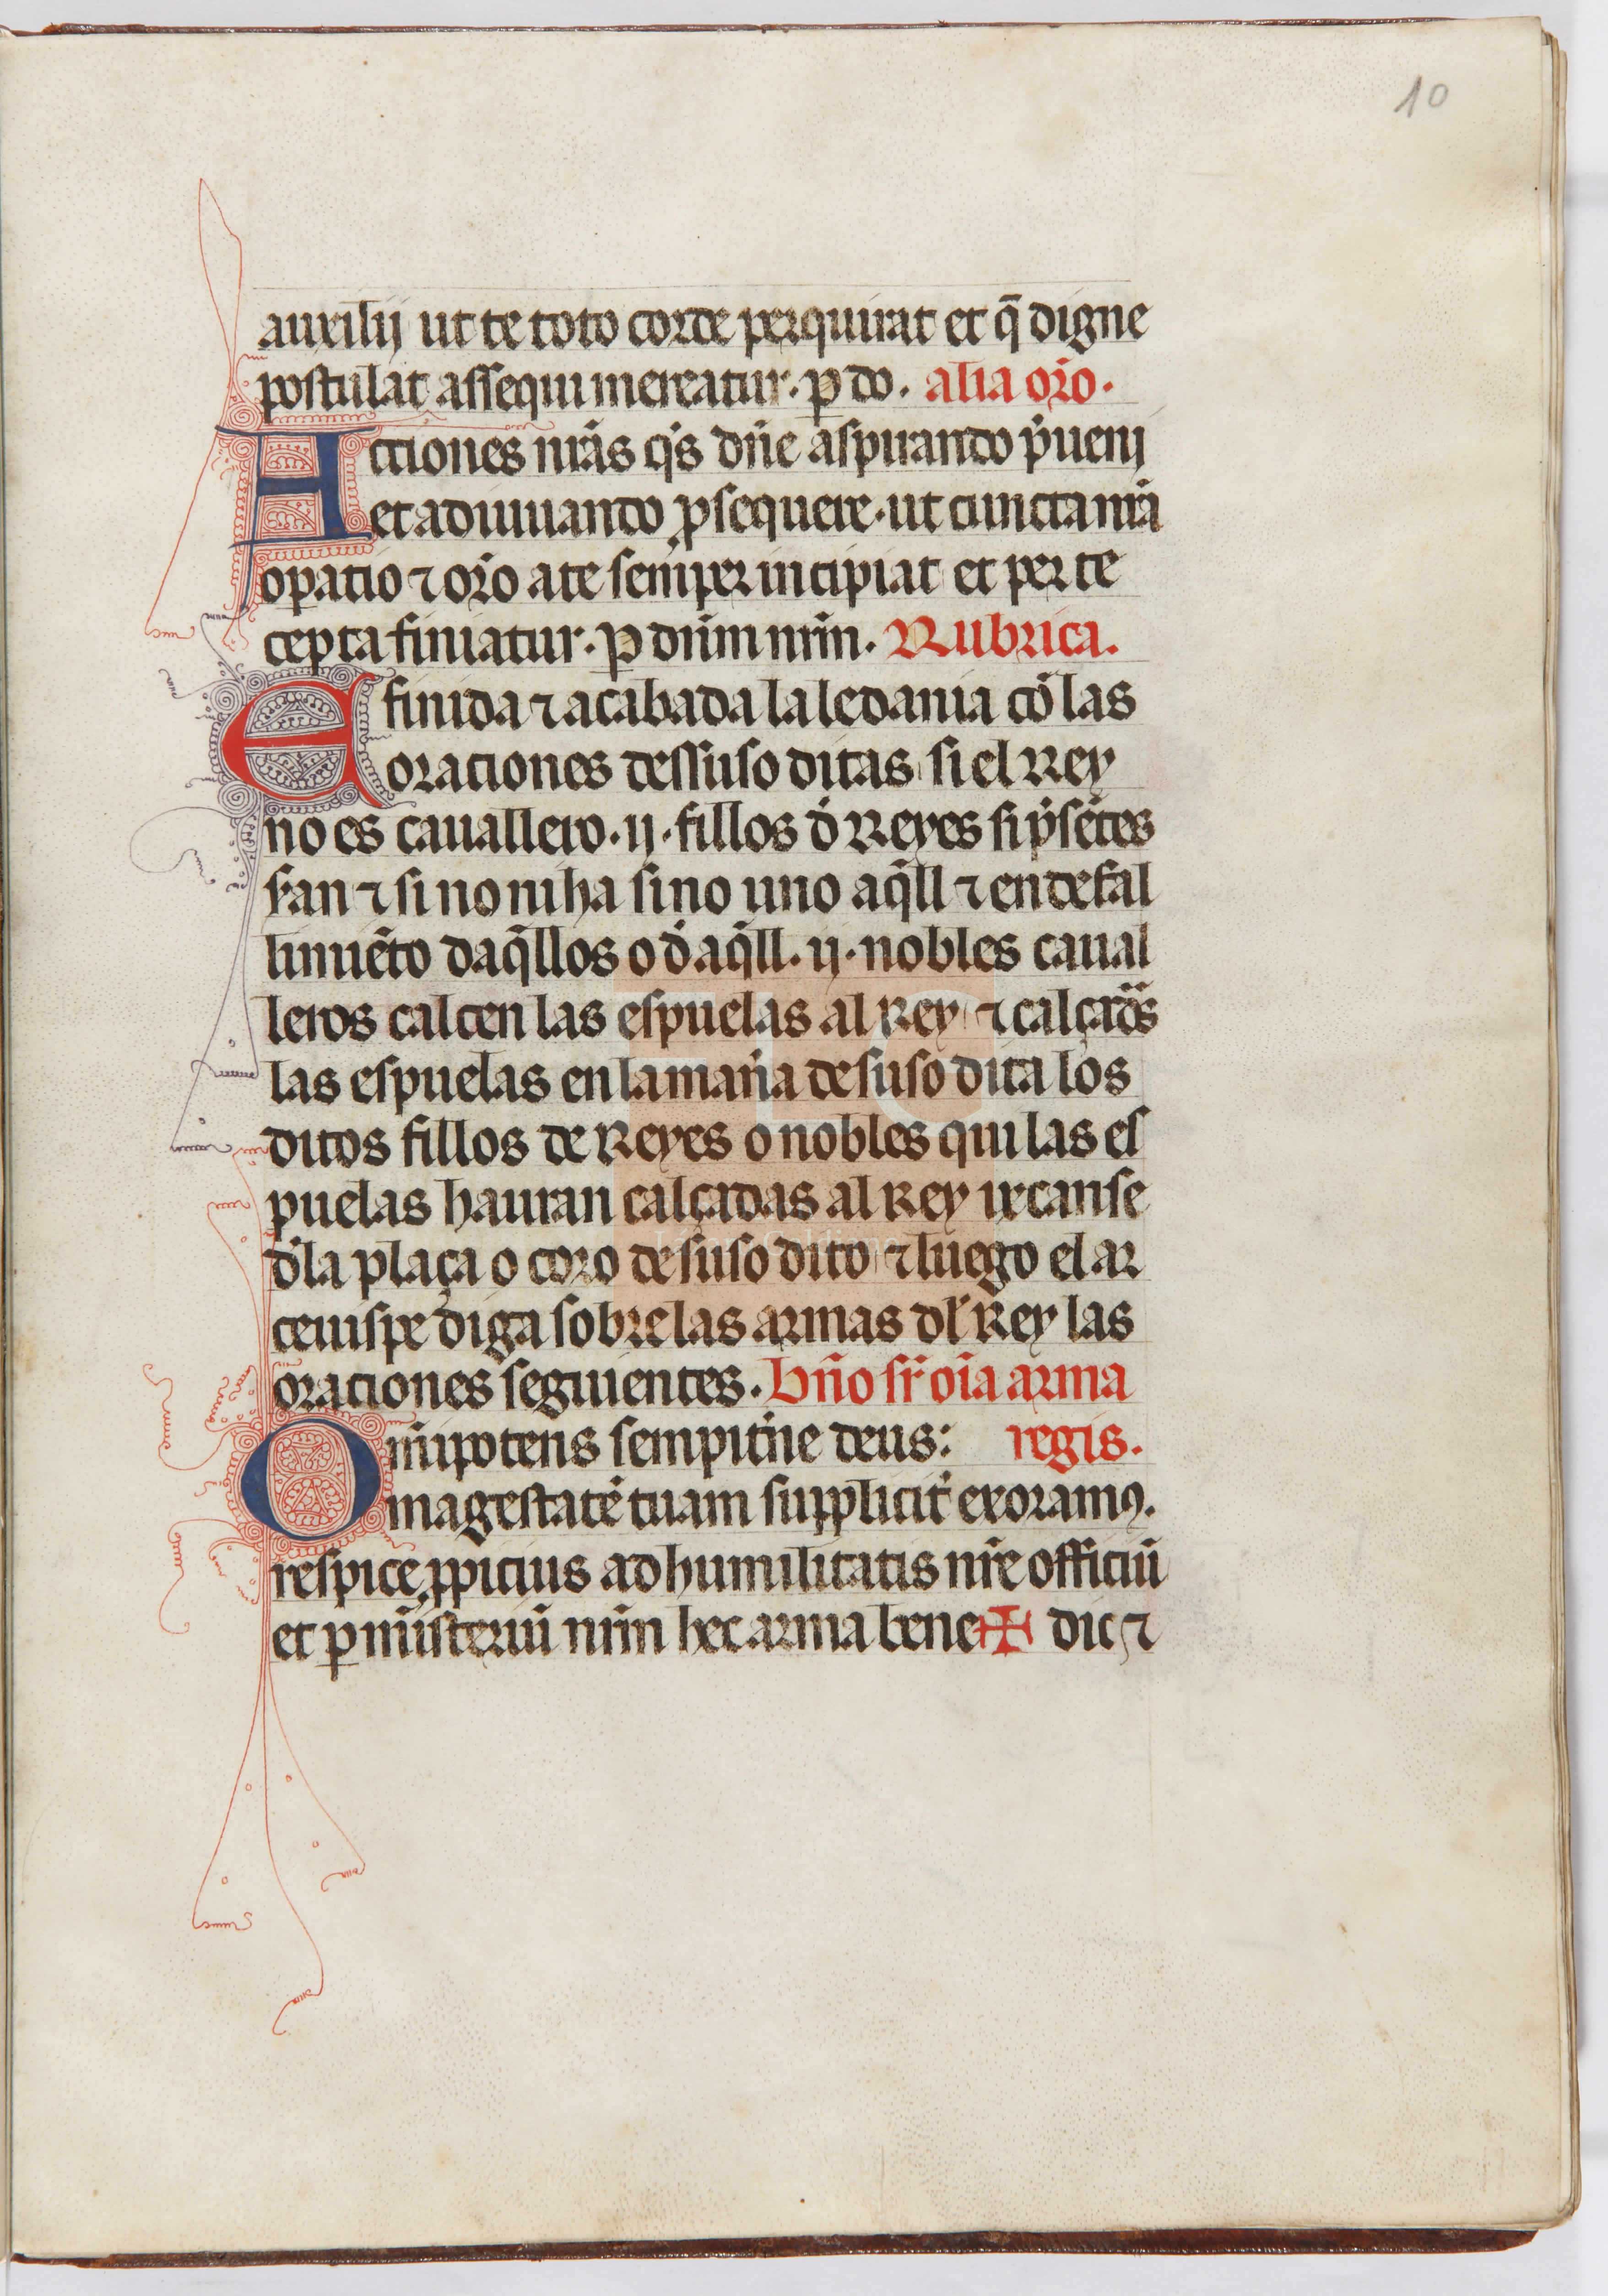 10
auxilij ut te toto corde perquirat et q̄ digne
postulat assequi mereatur. ꝑ do. alia oro.
Actiones nrās q̄s dn̄e aspirando p̄ueni
et adiuuando ꝓsequere. ut cuncta nrā
oꝑatio ⁊ oro a te semper incipiat et per te
cepta finiatur. ꝑ dn̄m nrm̄. Rubrica.
E finida ⁊ acabada la ledania cō las
oraciones dessuso ditas si el Rey
no es cauallero. ij. fillos d̄ Reyes si p̄sētes
hi
san ⁊ si no ni ha sino uno aq̄ll ⁊ en defal
limiēto daq̄llos o d̄ aq̄ll. ij. nobles caual
leros calcen las espuelas al Rey ⁊ calçadās
las espuelas en la mana̅ desuso dita los
ditos fillos de Reyes o nobles qui las es
puelas hauran calçadas al Rey ixcanse
dla plaça o coro desuso dito ⁊ luego el ar
ceuispe diga sobre las armas dl Rey las
oraciones seguientes. Bn̄o sr̄ oīa arma
Omīpotens sempitn̄e deus: regis.
magestatē tuam suppliciť exoramꝰ.
respice ꝓpicius ad humilitatis nrē officiū
et ꝑ misteriū nrm̄ hec arma bene✠ dic ⁊